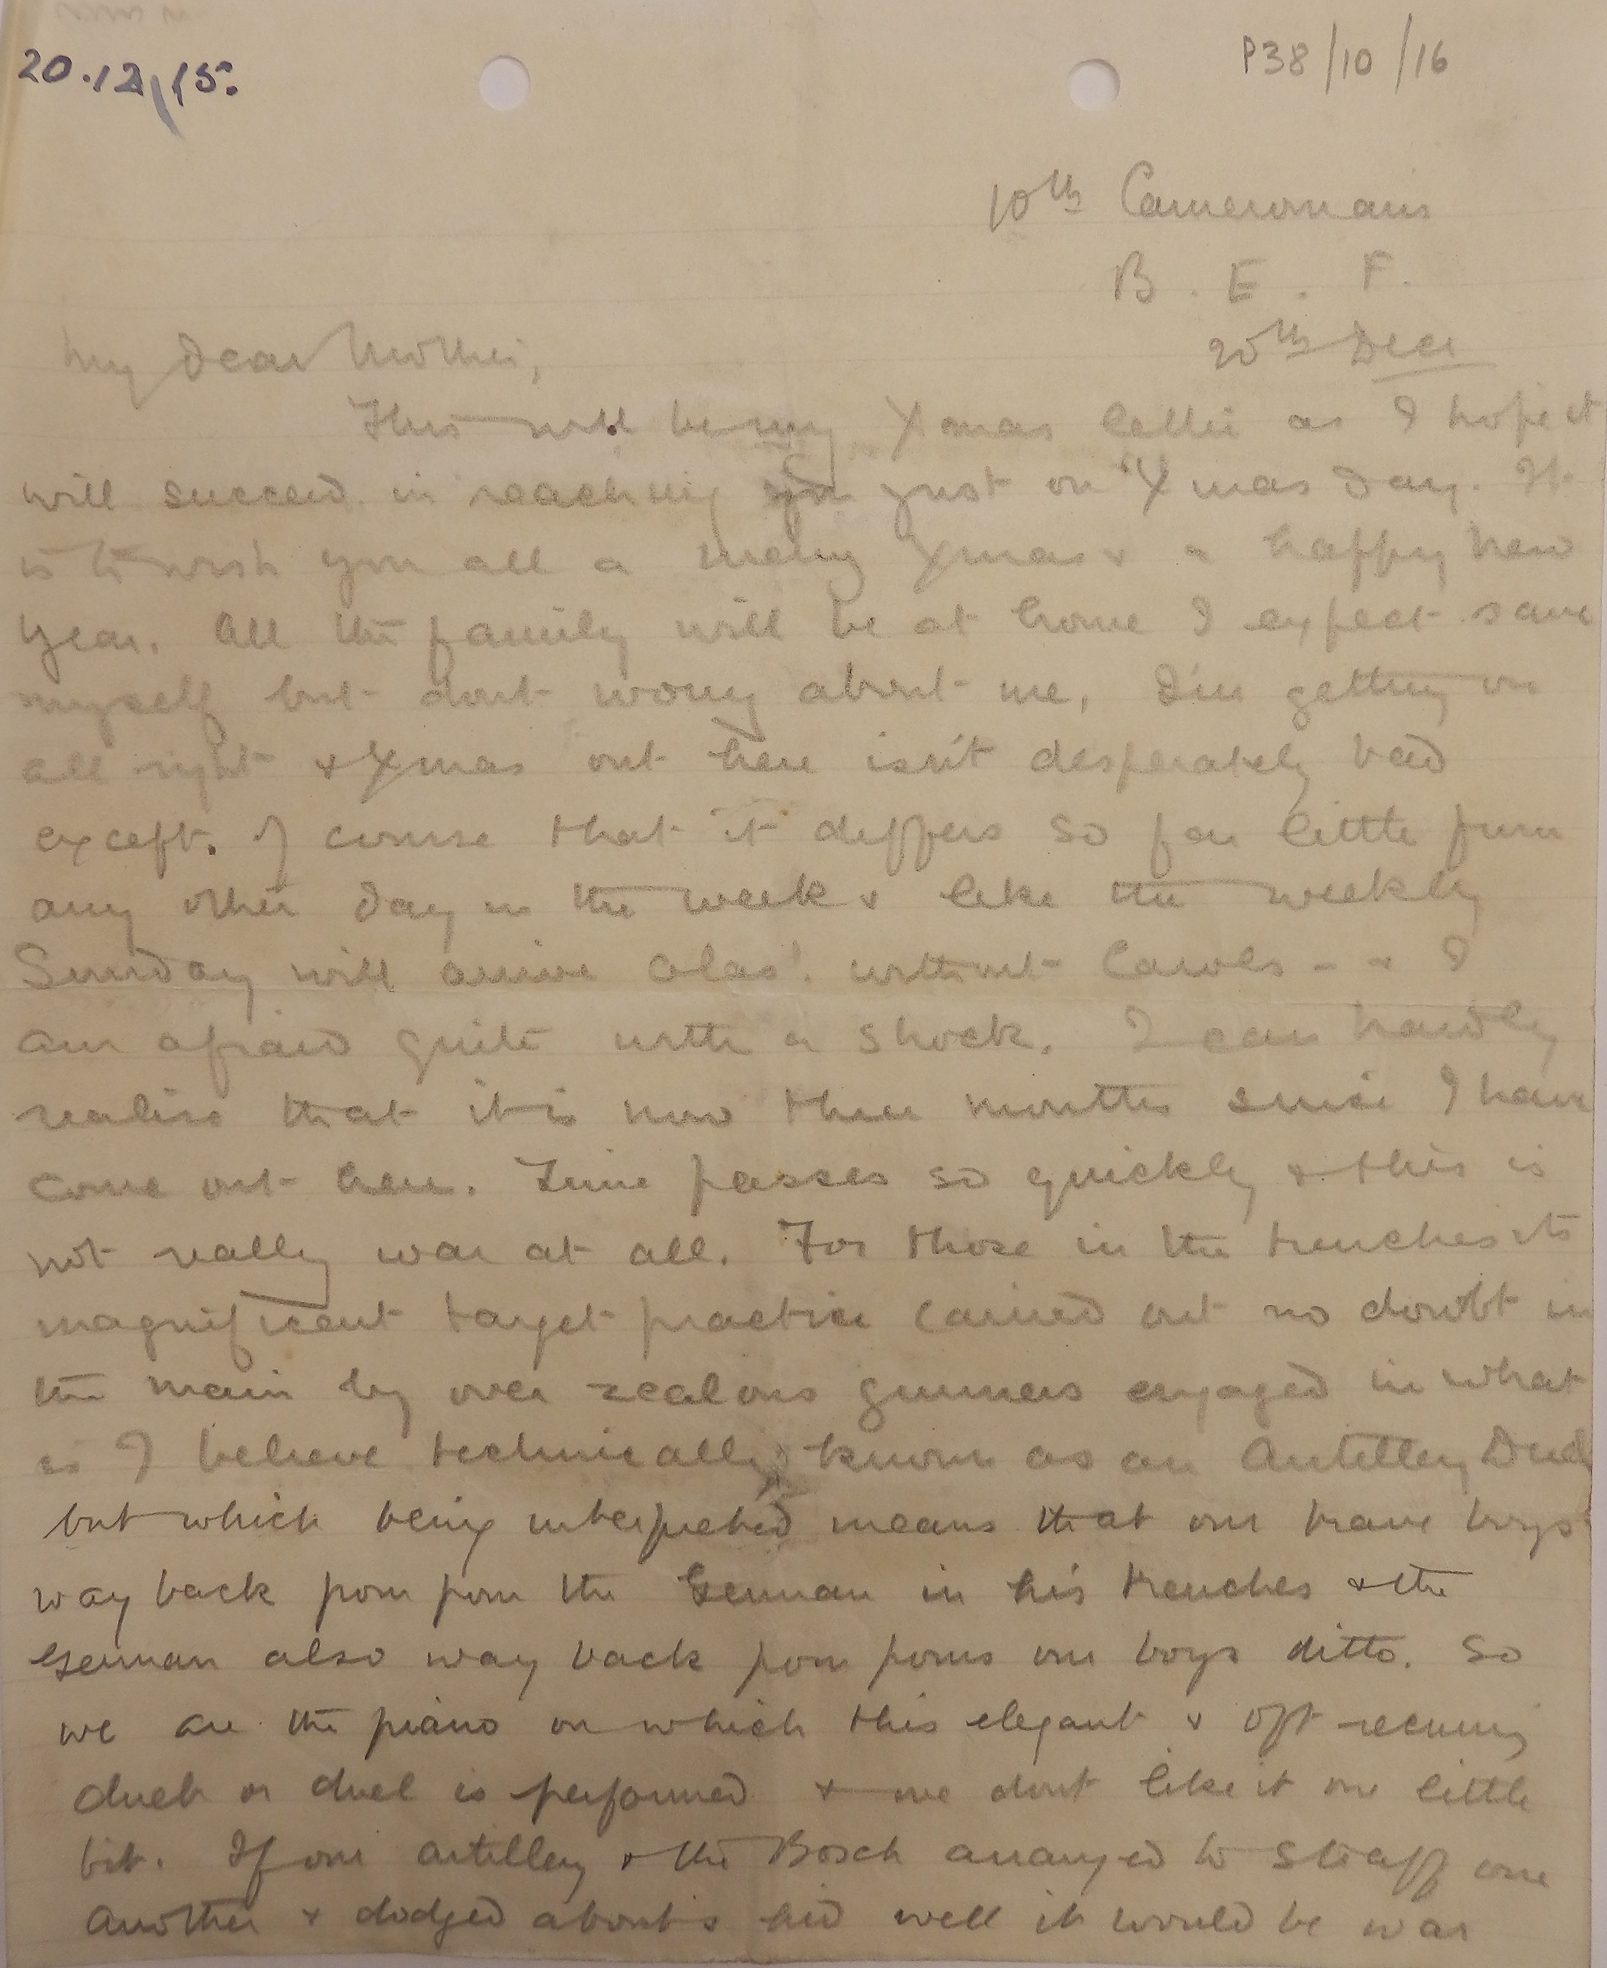 20.12/15.
P38/10/16
10th Cameronians
B. E. F.
20th Decr
My dear Mother,
This will be my Xmas letter as I hope it
will succeed in reaching you just on Xmas day. It
is to wish you all a merry Xmas & a happy New
Year. All the family will be at home I expect save
myself but dont worry about me, I'm getting on
all right & Xmas out here isn't desperately bad
except of course that it differs so far little from
any other day in the week & like the weekly
Sunday will arrive alas! without Carols - & I
am afraid quite with a shock. I can hardly
realise that it is now three months since I have
come out here. Time passes so quickly & this is
not really war at all. For those in the trenches its
magnificent target practice carried out no doubt in
the main by over zealous gunners engaged in what
is I believe technically known as an Artillery Duel
but which being interpreted means that our brave boys
way back pom pom the German in his trenches & the
German also way back pom poms our boys ditto. So
we are the piano on which this elegant & oft recurring
duet or duel is performed & we dont like it one little
bit. If our artillery & the Bosch arranged to strafe one
another & dodged about & hid well it would be war